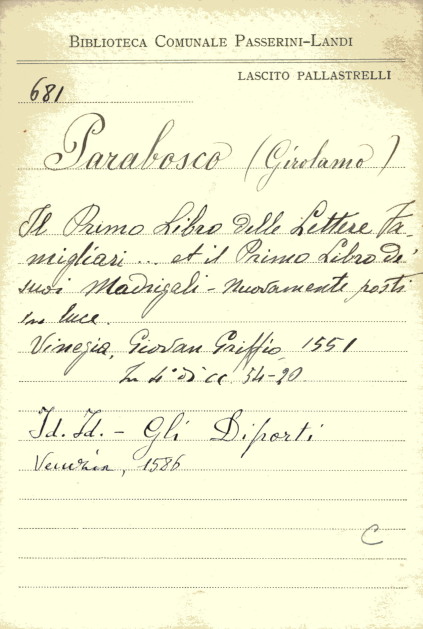 BIBLIOTECA COMUNALE PASSERINI-LANDI
LASCITO PALLASTRELLI
681
Parabosco (Girolamo)
Il Primo Libro delle Lettere Fa-
migliari ... et il Primo Libro de'
suoi Madrigali - Nuovamente posti
in luce.
Vinegia, Giovan Griffio, 1551
In 4° di cc. 54-20
Id. Id. - Gli Diporti
Venezia, 1586
C